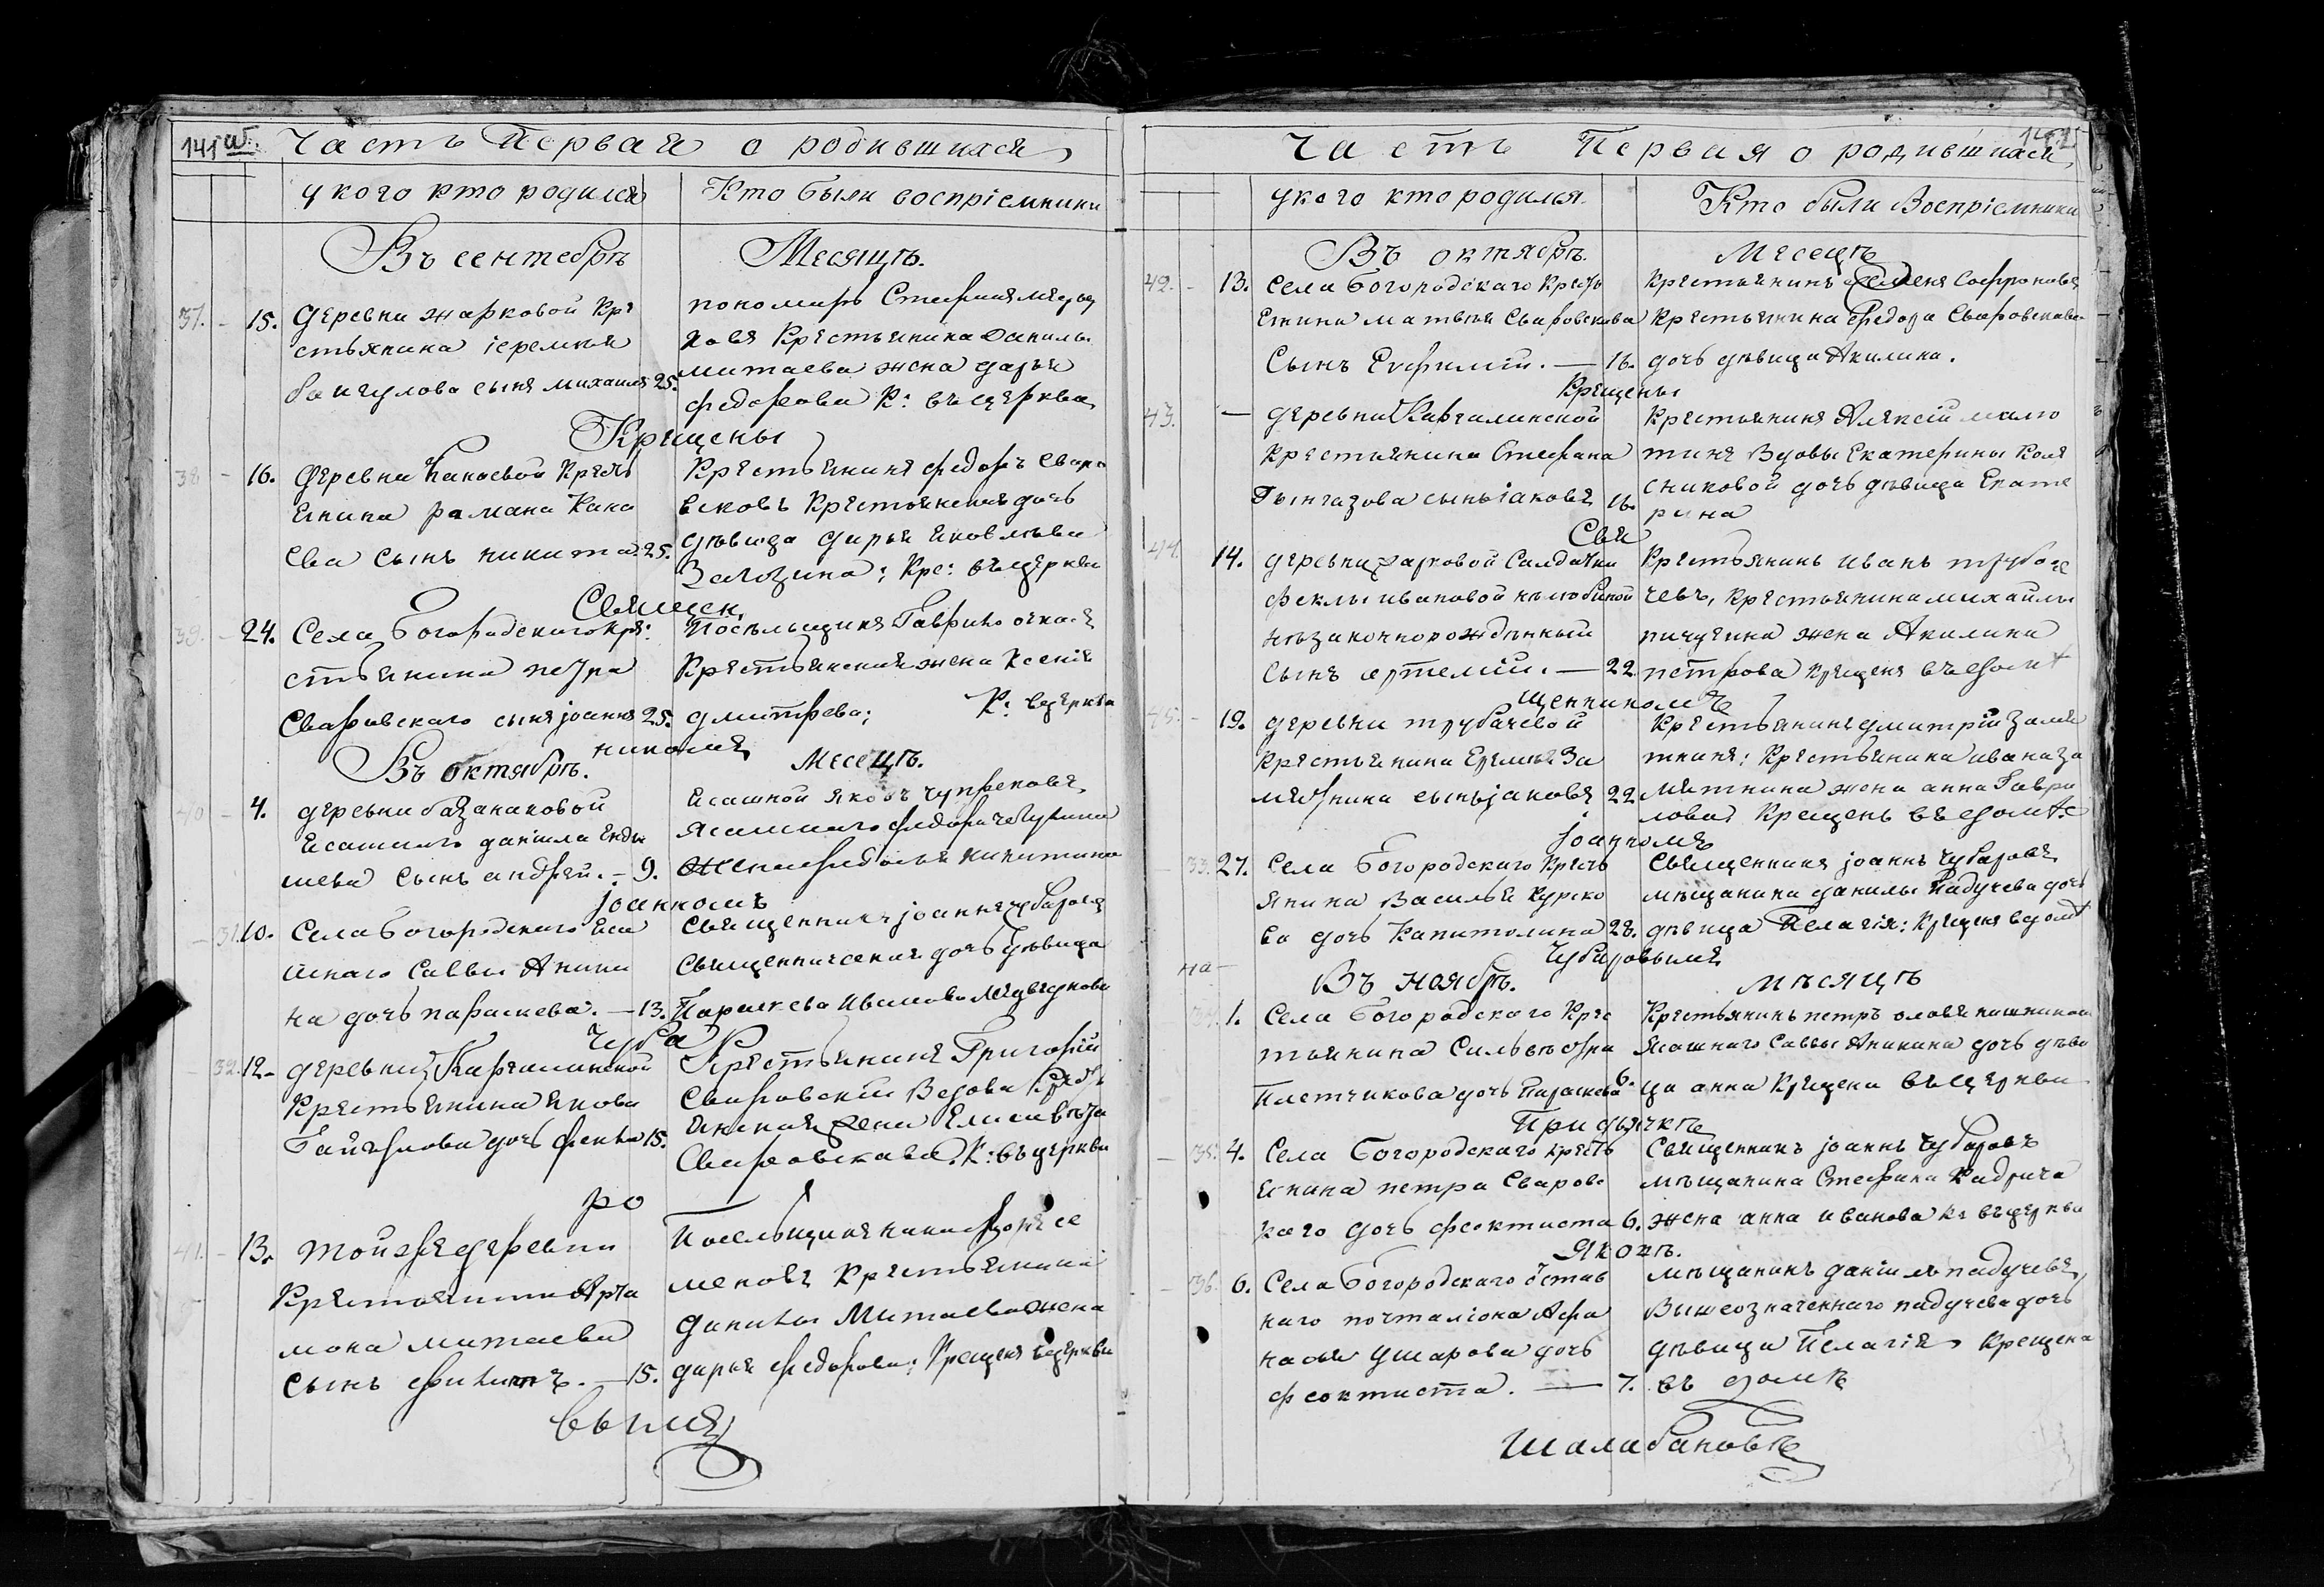 141 об.
Часть Первая о родившихся
у кого кто родился
Кто были восприемники
Въ сентябрѣ
Месяцѣ.
37. - 15. деревни жарковой кре
стьянина іеремѣя
сынъ михаилъ 25.
пономарь Стефанъ
Крестьянина Данилы
митаева жена дарья
федорова К: въ церкви
Крещены
38 - 16. деревни Канаевой Кресть
янина романа Кана
ева сынъ никита. 25.
Крестьянинъ федоръ Сваро
всковъ Крестьянская дочь
дѣвица дарья яковлева
Кре: въ церкви
Священ
39. - 24. Села Богородскаго кре:
стьянина петра
Сваровскаго сынъ јоаннъ 25.
Посѣльщикъ Гаврило
Крестьянская жена Ксенія
дмитрева;
К: въ церкви
никомъ
Въ октябрѣ.
Месецѣ.
40 - 4. деревни базанаковой
Есашнаго даніила
сынъ андрей. - 9.
Есашной яковъ
Ясашнаго федора
жена никитина
јоанномъ
31. 10. Села Богородскаго Яса
шнаго Саввы Аники
на дочь парасκева. - 13.
Священникъ јоаннъ Чубаровъ
Священническая дочь дѣвица
Параскева Иванова
Чуба
32. 12 - деревни Каргалинской
Крестьянина якова
дочь фекла 15.
Крестьянинъ Григорій
Сваровскій Вдова Кресть
янская жена Елисавѣта
Сваровскава. К: въ церкви
ро
41. - 13. той же деревни
Крестьянина Арта
мона митаева
сынъ филипъ. - 15.
Посельщикъ никифоръ се
меновъ Крестьянина
данилы Митаева жена
дарья федорова; Крещенъ въ церкви
вымъ
142
Часть Первая о родившихся
у кого кто родился.
Кто были Восприемники
Въ октябрѣ.
Месецѣ
42. - 13. Села Богородскаго Кресть
янина матвея Сваровскова
Сынъ Евфимій. - 16.
Крестьянинъ Семенъ Софроновъ
Крестьянина Федора Сваровскава
дочь дѣвица Акилина.
Крещены
43. - деревни Каргалинской
Крестьянина Стефана
Тынгазова сынъ іаковъ 16.
Крестьянинъ Алексій мамо
тинъ Вдовы Екатерины Коле
сниковой дочь дѣвица Екате
рина
Свя
44. 14. деревни жарковой Салдатки
феклы ивановой
незаконнорожденный
сынъ артемій. - 22.
Крестьянинъ иванъ трубоче
чевъ, крестьянина михайлы
пичугина жена Акилина
петрова крещенъ въ доме
щенникомъ
45. - 19. деревни трубачевой
Крестьянина Еремея За
мятнина сынъ јаковъ 22
Крестьянинъ димитрій Замя
тнинъ: Крестьянина ивана За
мятнина жена анна Гаври
лова Крещенъ въ доме
јоанномъ
33. 27. Села Богородскаго Кресть
янина Василья Курско
ва дочь Капитолина 28.
Священникъ јоаннъ Чубаровъ
мѣщанина данилы Падучева дочь
дѣвица Пелагія: Крещена въ доме
Чубаровымъ
на -
Въ ноябрѣ.
мѣсяцѣ
34. 1. Села Богородскаго Крес
тьянина Сильвѣстра
Плетчикова дочь Параскева 6.
Крестьянинъ петръ
Ясашнаго Саввы Аникина дочь дѣви
ца анна Крещена въ церкви
При дьячкѣ
35. 4. Села Богородскаго кресть
янина петра Сваровс
каго дочь феоктиста 6.
Священникъ јоаннъ Чубаровъ
мѣщанина Стефана Кадрича
жена анна иванова Кр въ церкви
Яковѣ.
36. 6. Села Богородскаго отстав
наго почталіона Афа
насья Ушарова дочь
феоктиста. - 7.
Мѣщанинъ даніилъ падучевъ
Вышеозначеннаго падучева дочь
дѣвица Пелагія Крещена
въ доме
Шалабановѣ